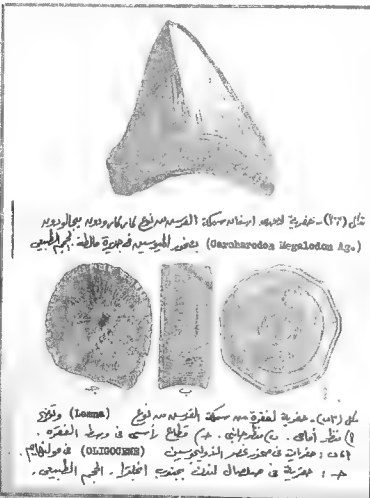 شكل (٣٢) ـ حفرية لأحد أسنان سمكة القرش من نوع كاركارودون ميجالودون
(Carcharodon Megalodon Ag.) بصخور الميوسين فى جزيرة مالطة بالحجم الطبيعى
جـ ب
شكل (٣٣) ـ حفرية لفقرة من سمكة القرش من نوع (Lamna) وترى
أ) منظر أمامى . ب) منظر جانبى . جـ) قطاع رأسى فى وسط الفقرة
أ ، ب : حفرية فى صخور عصر الاوليجوسين (OLIGOCENE) فى
جـ : حفرية فى صلصال لندن بجنوب انجلترا . الحجم الطبيعى .